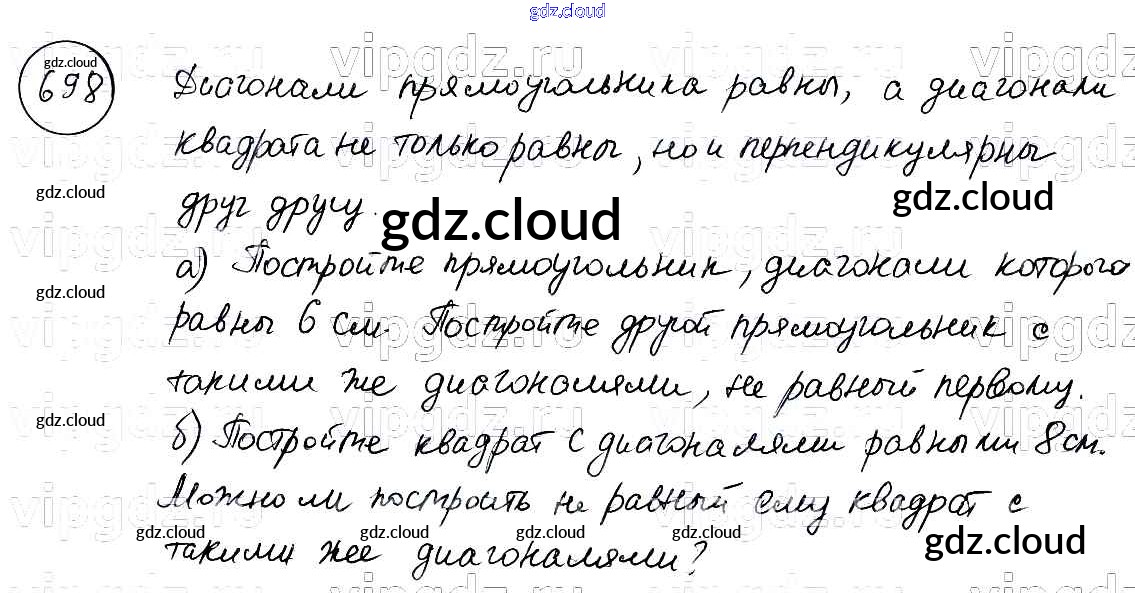 gdz.cloud
vipgdz.ru vipgdz.ru vipgdz.ru vipgdz
gdz.cloud
698 Диагонали прямоугольника равны, а диагонали
квадрата не только равны, но и перпендикулярны
gdz.cloud
gdz.cloud
друг другу.
gdz.cloud
а) Постройте прямоугольник, диагонали которого
gdz.cloud
равны 6 см. Постройте другой прямоугольник с
такими же диагоналями, не равный первому.
gdz.cloud
б) Постройте квадрат с диагоналями равными 8 см.
Можно ли построить не равный ему квадрат с
gdz.cloud gdz.cloud gdz.cloud gdz.cloud
такими же диагоналями?